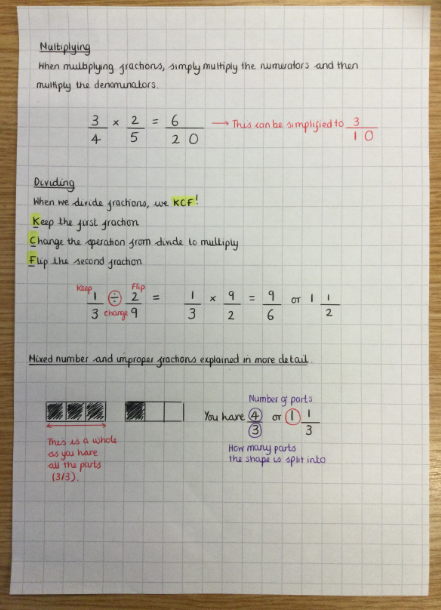 Multiplying
When multiplying fractions, simply multiply the numerators and then
multiply the denominators.
3/4 × 2/5 = 6/20 → This can be simplified to 3/10
Dividing
When we divide fractions, we KCF!
Keep the first fraction
Change the operation from divide to multiply
Flip the second fraction
Keep Flip
1/3 ÷ 2/9 = 1/3 × 9/2 = 9/6 or 1 1/2
Change
Mixed number and improper fractions explained in more detail.
Number of parts
You have 4/3 or 1 1/3
This is a whole
as you have
all the parts
(3/3).
How many parts
the shape is split into